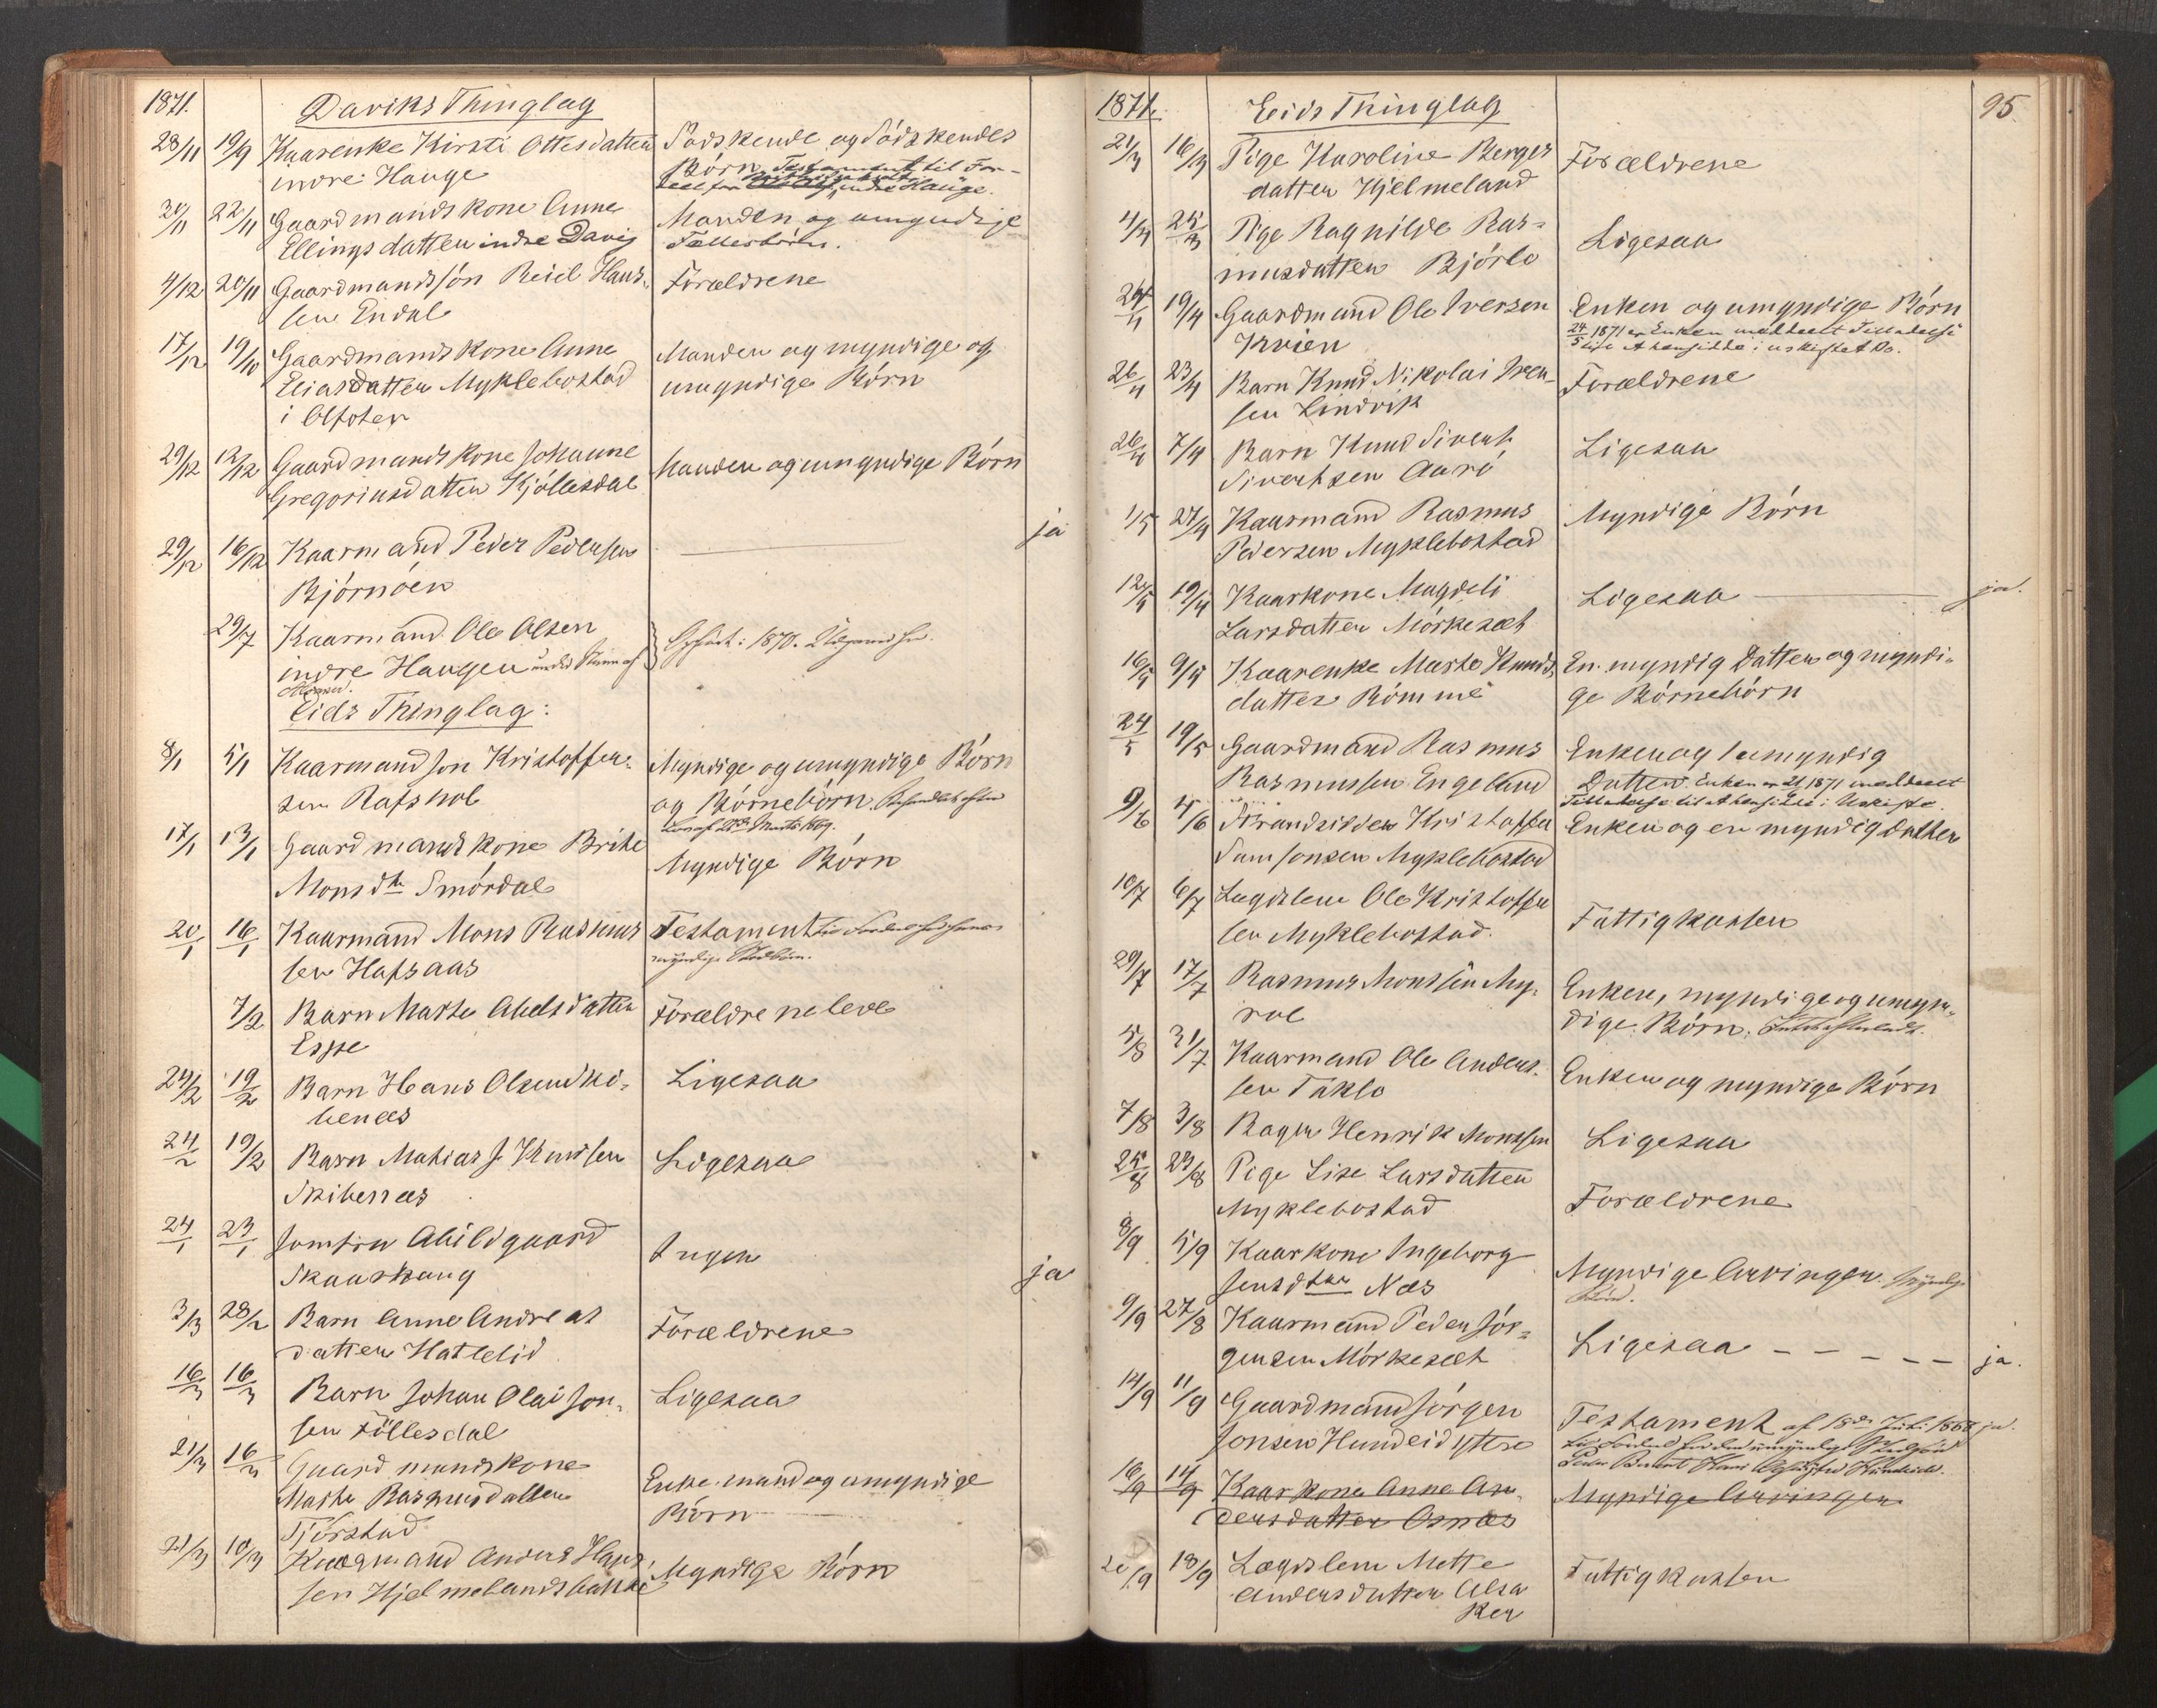 1871.
Daviks Thinglag
28/11 19/9 Kaarenke Kirsti Ottesdatter
indre Hauge
Södskende og Södskendes
Börn. Testament til For-
deel for indre Hauge.
30/11 22/11 Gaardmandskone Anne
Ellingsdatter indre Davig
Manden og umyndige
Fællesbörn.
4/12 20/11 Gaardmandssön Reiel Hans-
sen Endal
Forældrene
17/12 19/10 Gaardmandskone Anne
Eliasdatter Myklebostad
i Olfoten
Manden og myndige og
umyndige Börn
29/12 12/12 Gaardmandskone Johanne
Gregoriusdatter Kjöllesdal
Manden og umyndige Börn
29/12 16/12 Kaarmand Peder Pedersen
Björnöen
ja
29/7 Kaarmand Ole Olsen
indre Haugen
1870.
Eids Thinglag:
8/1 5/1 Kaarmand Jon Kristoffer-
sen Rafshol
Myndige og umyndige Börn
og Börnebörn.
Lov af Marts 1869.
17/1 13/1 Gaardmandskone Brite
Monsdtr Smördal
Myndige Börn
20/1 16/1 Kaarmand Mons Rasmus
sen Hafsaas
Testament
myndige
7/2 Barn Marte Abelsdatter
Espe
Forældrene leve
24/2 19/2 Barn Hans Olsen Ski-
benæs
Ligesaa
24/2 19/2 Barn Mathias J. Knudsen
Skibenæs
Ligesaa
24/1 23/1 Jomfru Abildgaard
Skaarhaug
Ingen
ja
3/3 28/2 Barn Anne Andreas
datter Hatlelid
Forældrene
16/3 16/3 Barn Johan Olai Jon-
sen Föllesdal
Ligesaa
21/3 16/3 Gaardmandskone
Marte Rasmusdatter
Tjörstad
Enkemand og umyndige
Börn
21/3 10/3 Kaarmand Anders Hans
sen Hjelmelandsbakke
Myndige Börn
1871.
Eids Thinglag
95
21/3 16/3 Pige Karoline Berges
datter Hjelmeland
Forældrene
4/4 25/3 Pige Ragnilde Ras-
musdatter Bjørlo
Ligesaa
24/4 19/4 Gaardmand Ole Iversen
Kvien
Enken og umyndige Börn
24/5 1871 er Enken meddeelt Tilladelse
til at hensidde i uskiftet Bo.
26/4 23/4 Barn Knud Nikolai Iver-
sen Lindvik
Forældrene
26/4 7/4 Barn Knud Sivert
Sivertsen Aarö
Ligesaa
1/5 27/4 Kaarmand Rasmus
Pedersen Myklebostad
Myndige Börn
12/5 19/4 Kaarkone Magdeli
Larsdatter Mörkesæt
Ligesaa
ja.
16/5 9/5 Kaarenke Marte Knuds
datter Römme
En myndig Datter og myndi-
ge Börnebörn
24/5 19/5 Gaardmand Rasmus
Rasmussen Engeland
Enken og 1 umyndig
Datter. Enken er 1871 meddeelt
Tilladelse til at hensidde i Uskifte.
9/6 4/6 Strandsidder Kristoffer
Samsonsen Myklebostad
Enken og en myndig datter
10/7 6/7 Lægdslem Ole Kristoffer
sen Myklebostad.
Fattigkassen
29/7 17/7 Rasmus Monssen My-
rol
Enken, myndige og umyn-
dige Börn.
5/8 31/7 Kaarmand Ole Anders-
sen Taklo
Enken og myndige Börn
7/8 3/8 Bager Henrik Monssen
Ligesaa
25/8 23/8 Pige Lise Larsdatter
Myklebostad
Forældrene
8/9 5/9 Kaarkone Ingeborg
Jensdtter Næs
Myndige Arvinger.
9/9 27/8 Kaarmand Peder Jör-
gensen Mörkesæt
Ligesaa
ja.
14/9 11/9 Gaardmand Jörgen
Jonsen Hundeid ytre
Testament af 18de Juli 1868 ja.
til Fordeel for den umyndige
Peder Hundeide.
16/9 14/9 Kaarkone Anne An-
dersdatter Osnæs
Myndige Arvinger
20/9 18/9 Lægdslem Mette
Andersdatter Alsa
ker
Fattigkassen